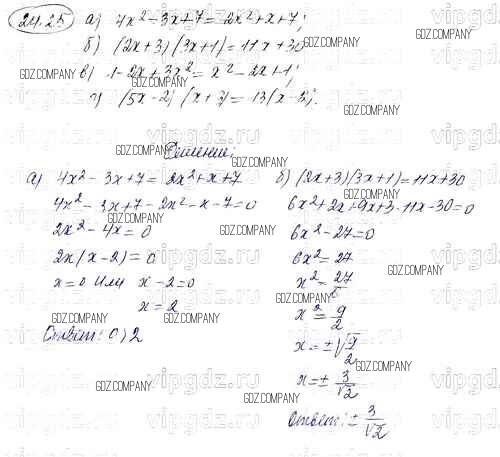 24.25 а) 4x² - 3x + 7 = 2x² + x + 7;
б) (2x+3)(3x+1) = 11x + 30
в) 1 - 2x + 3x² = x² - 2x + 1;
г) (5x-2)(x+3) = 13(x-2).
Решение:
а) 4x² - 3x + 7 = 2x² + x + 7
4x² - 3x + 7 - 2x² - x - 7 = 0
2x² - 4x = 0
2x(x-2) = 0
x = 0 или x - 2 = 0
x = 2
Ответ: 0; 2
б) (2x+3)(3x+1) = 11x + 30
6x² + 2x + 9x + 3 - 11x - 30 = 0
6x² - 27 = 0
6x² = 27
x² = 27/6
x² = 9/2
x = ±√9/2
x = ± 3/√2
Ответ: ± 3/√2
GDZ.COMPANY
vipgdz.ru